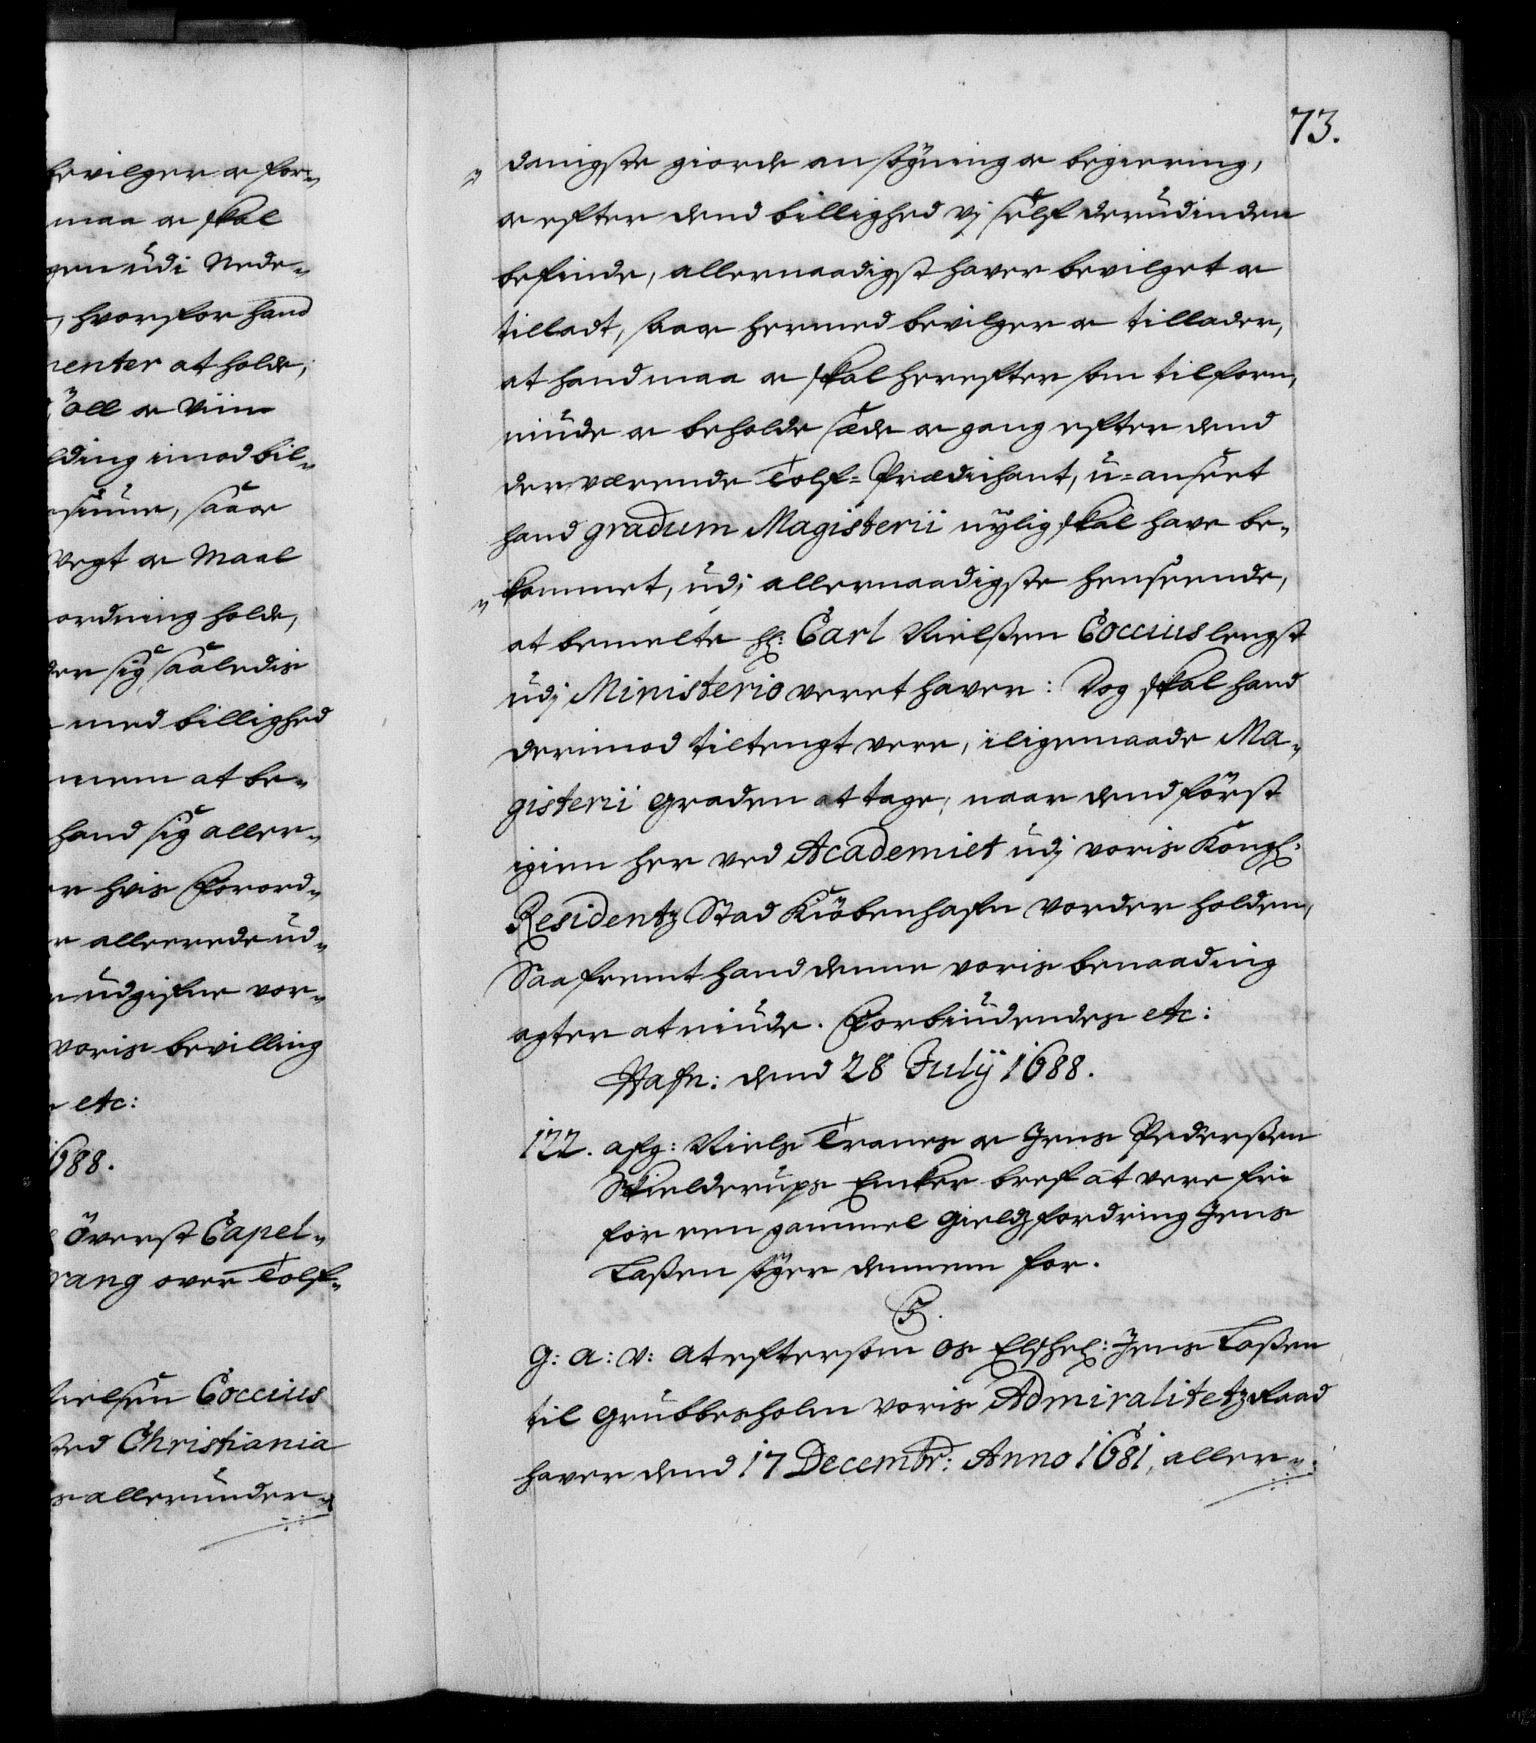 bevilger oc for-
maa oc skal
gen udi Nede-
, hvorfor hand
enter at holde,
öll oc Viin
lding imod bil-
siune, saa oc
Vegt oc Maal
ordning holde,
der sig saaledis
med billighed
nem at be-
hand sig aller-
er hvis Forord-
r allerede ud-
udgifne vor-
voris bevilling
etc:
688.
överst Capel-
rang over Tolf-
Nielsen Coccius
ved Christiania
allerunder-
73.
danigste giorde ansögning oc begiering,
oc efter dend billighed vj self derudinden
befinde, allernaadigst haver bevilget oc
tilladt, saa oc hermed bevilger oc tillader,
at hand maa oc skal herefter som tilforn,
niude oc beholde sæde oc gang efter dend
der værende Tolf-Prædichant, u-anseet
hand gradum Magisterii nylig skal have be-
kommet, udj allernaadigste henseende,
at bemelte Hr: Carl Nielsen Coccius lengst
udj Ministerio veret haver: Dog skal hand
derimod tiltengt vere, iligemaade Ma-
gisterii graden at tage, naar dend först
igien her ved Academiet udj voris Kongl:
Residentz Stad Kiöbenhafn vorder holden,
Saafremt hand denne voris benaading
agter at niude. Forbiudendes etc:
Hafn: dend 28 Julij 1688.
122. afg: Niels Tranes oc Jens Pederßen
Skielderups Encker bref at vere fri
for een gammel gieldz fordring Jens
Laßen söger dennem for.
C5.
G: A: V: At eftersom os Elskel: Jens Laßen
til Grubbesholm voris Admiralitetz Raad
haver dend 17 Decembr: Anno 1681, aller-